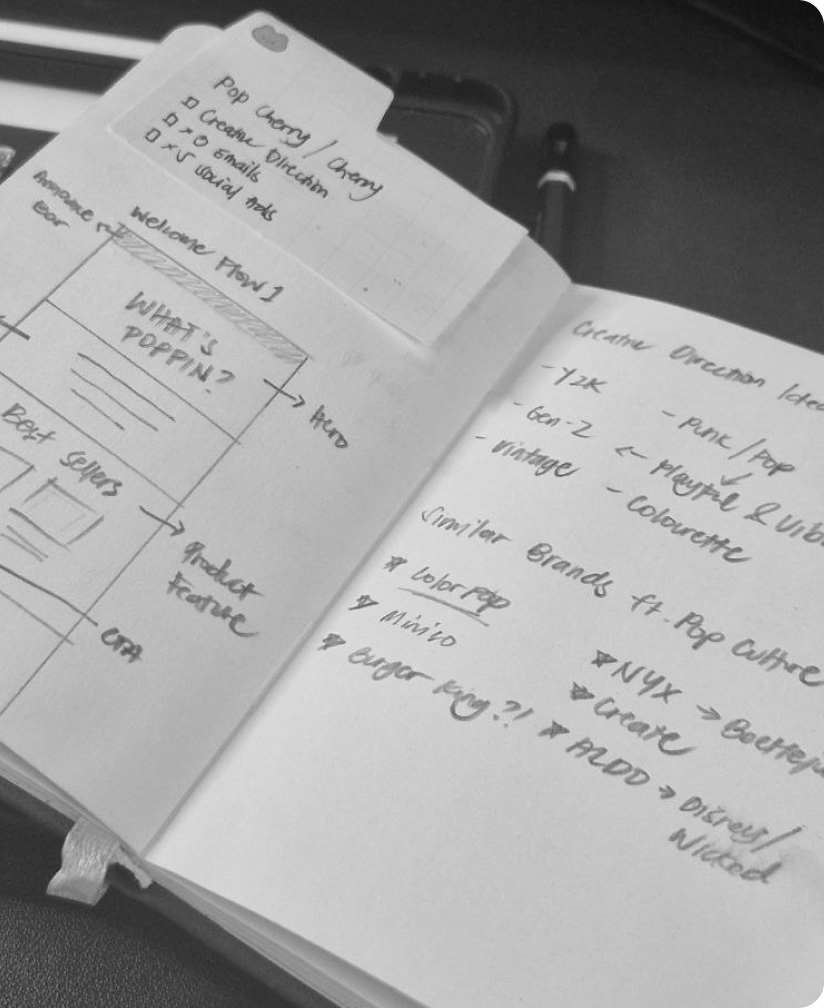 Pop Cherry / Cherry
Creative Direction
x 8 Emails
x 5 Social Ads
Announce
Bar
Welcome Flow 1
WHAT'S
POPPIN?
Hero
Best Sellers
Product
Feature
CTA
Creative Direction Idea
- Y2K
- Gen-Z
- Vintage
- Punk / Pop
← Playful & Vib
- Colourette
Similar Brands ft. Pop Culture
ColorPop
Minico
Burger King?!
NYX → Beetleju
Create
ALDO → Disney/
Wicked